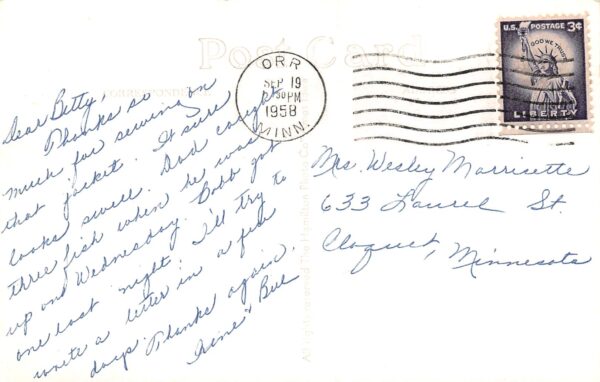 Post Card
CORRESPONDENCE
ORR
SEP 19
30 PM
1958
MINN.
U.S. POSTAGE 3¢
IN GOD WE TRUST
LIBERTY
Dear Betty,
Thanks so
much for sewing on
that jacket. It sure
looks swell. Dad caught
three fish when he was
up on Wednesday. Bobb got
one last night. I'll try to
write a letter in a few
days. Thanks again.
Irene & Bill
Mrs. Wesley Morrisette
633 Laurel St.
Cloquet, Minnesota